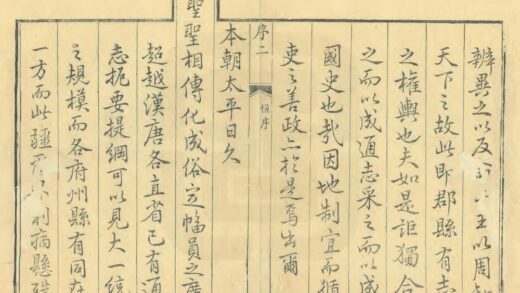 辨異之以反
天下之故此即郡縣有志
之權輿也夫如是詎獨合
之而以成通志采之而以成
國史也哉因地制宜而循
吏之善政亦於是焉出爾
序二
恒序
本朝太平日久
聖聖相傳化成俗定幅員之廣
超越漢唐各直省已有通
志扼要提綱可以見大一統
之規模而各府州縣有同在
一方而此疆 利病懸殊